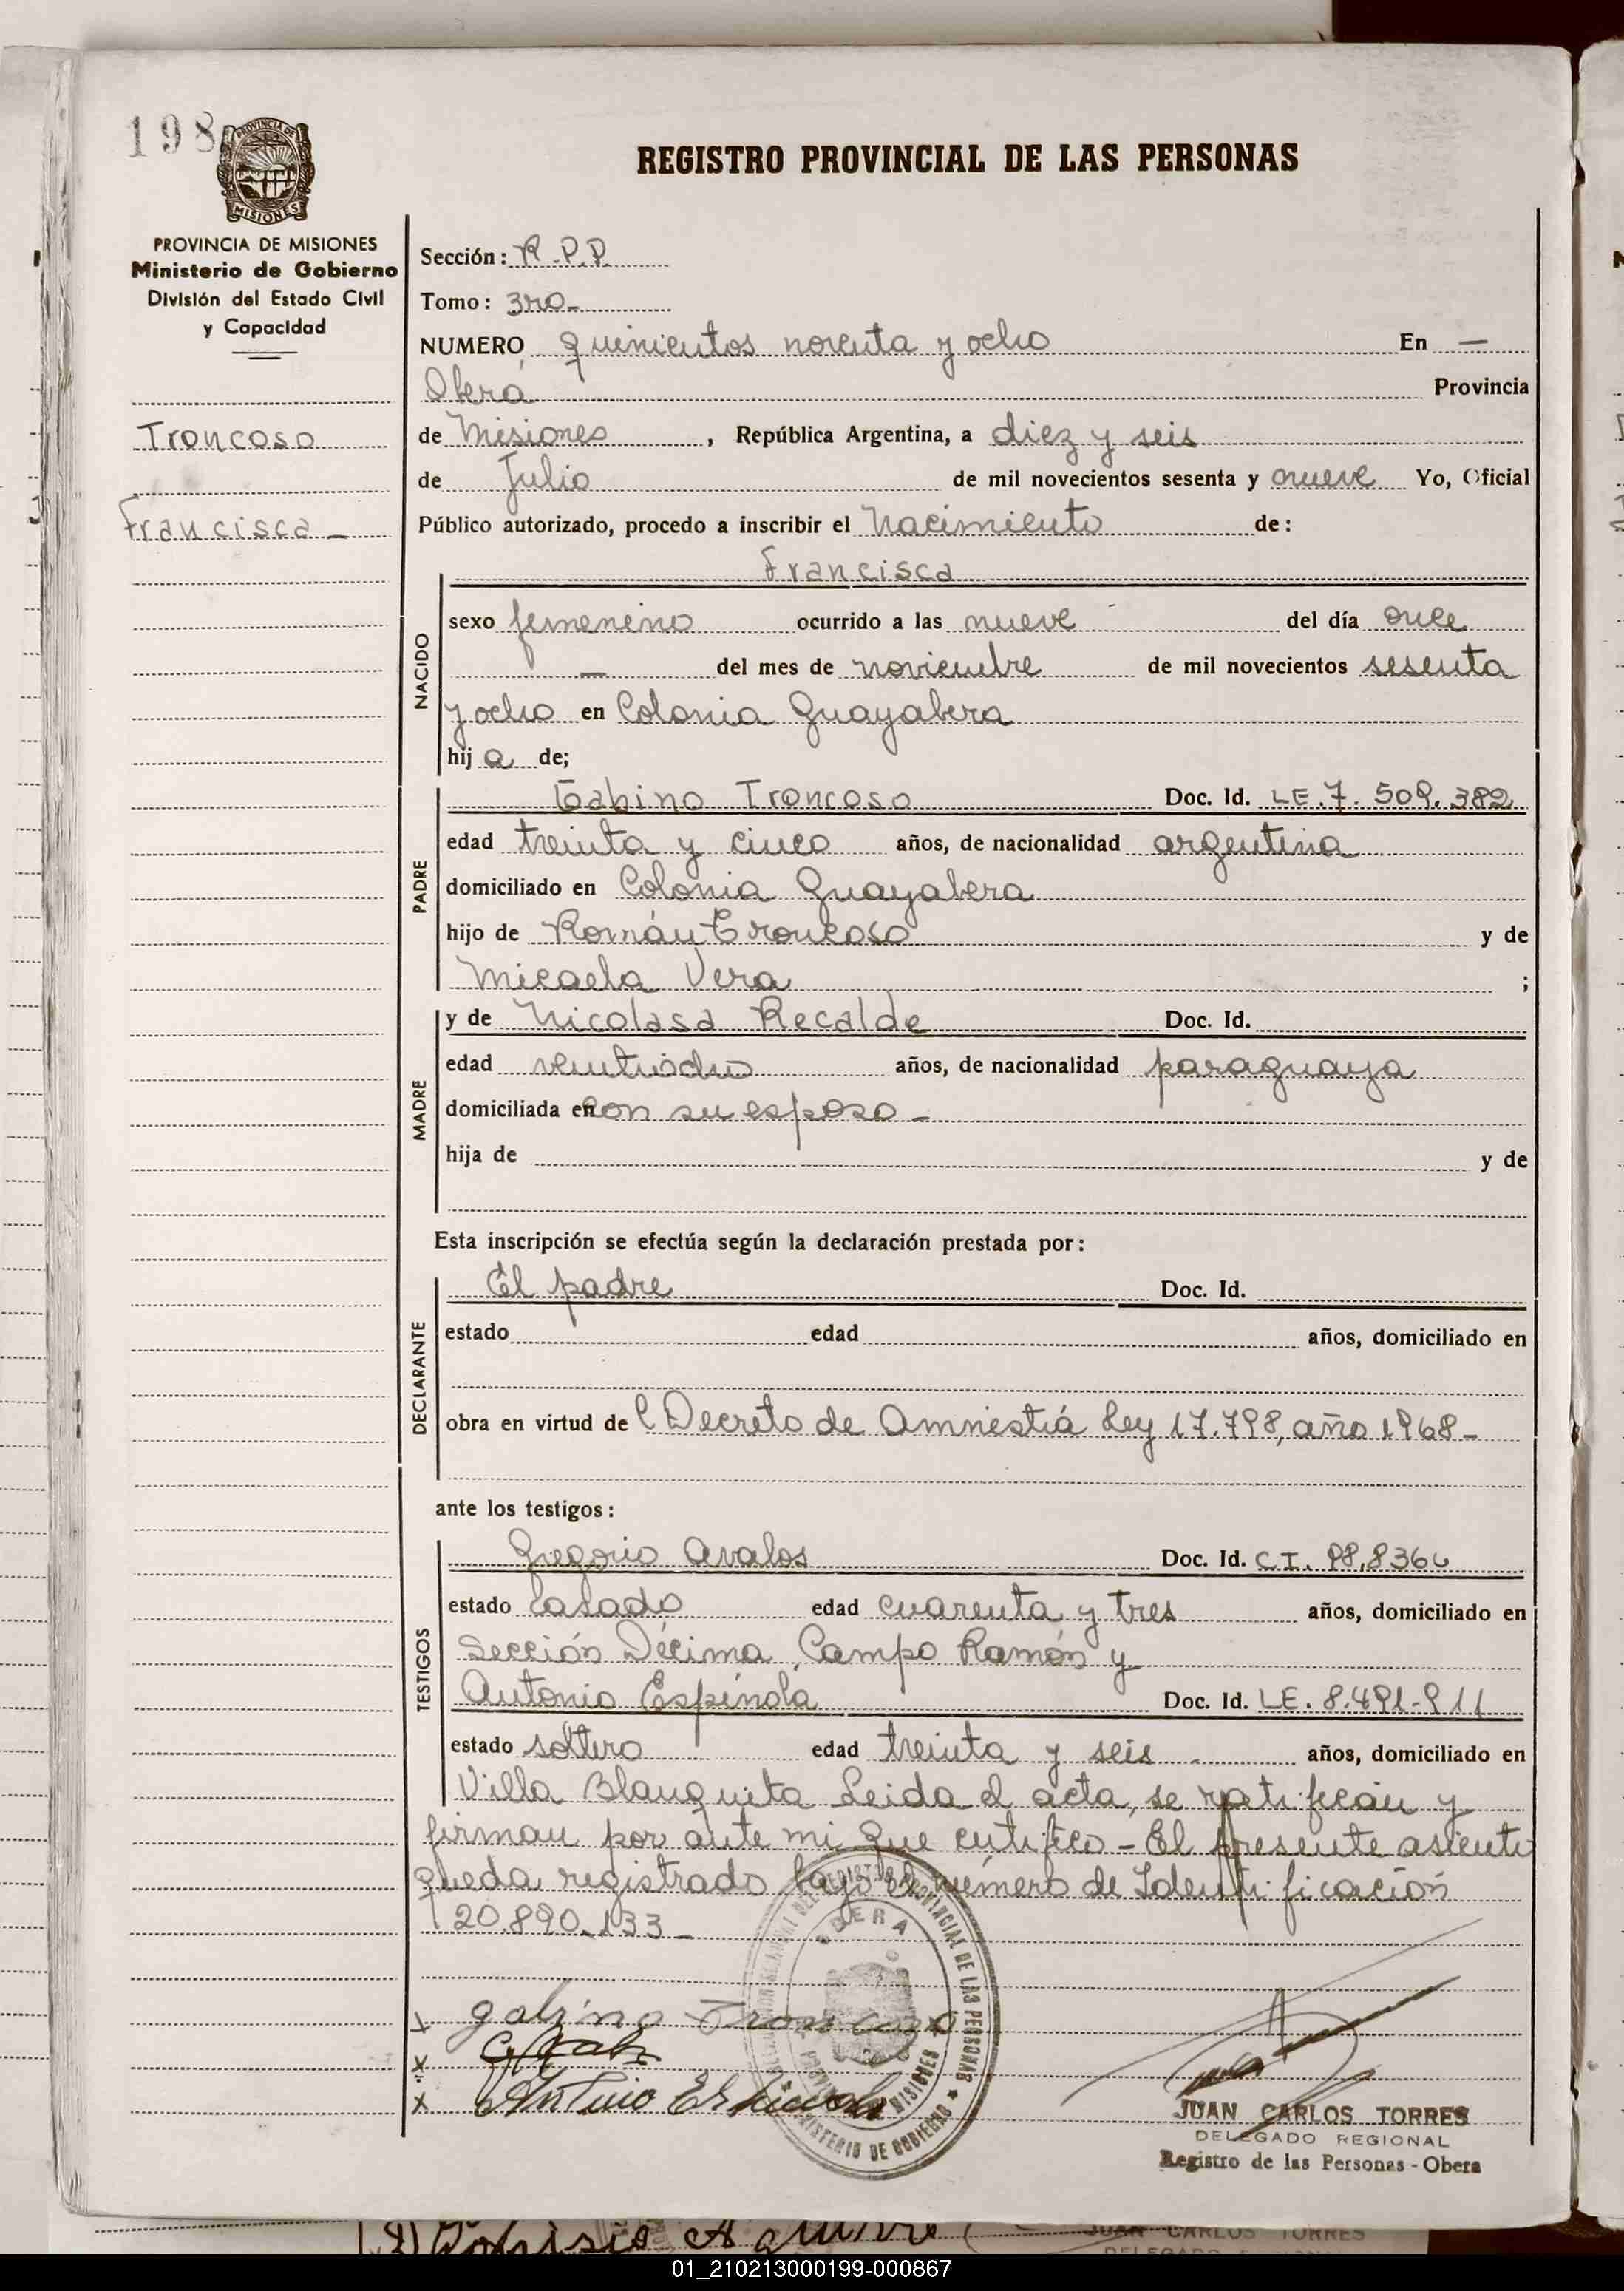 198
PROVINCIA DE
MISIONES
REGISTRO PROVINCIAL DE LAS PERSONAS
PROVINCIA DE MISIONES
Ministerio de Gobierno
División del Estado Civil
y Capacidad
Troncoso
Francisca _
Sección: R.P.P.
Tomo: 3ro-
NUMERO quinientos noventa y ocho En —
Oberá Provincia
de Misiones, República Argentina, a diez y seis
de Julio de mil novecientos sesenta y nueve Yo, Oficial
Público autorizado, procedo a inscribir el Nacimiento de:
Francisca
NACIDO
sexo femenino ocurrido a las nueve del día once
— del mes de noviembre de mil novecientos sesenta
y ocho en Colonia Guayabera
hij a de;
PADRE
Gabino Troncoso Doc. Id. LE. 7. 509. 382
edad treinta y cinco años, de nacionalidad argentina
domiciliado en Colonia Guayabera
hijo de Román Troncoso y de
Micaela Vera ;
MADRE
y de Nicolasa Recalde Doc. Id.
edad veintiocho años, de nacionalidad paraguaya
domiciliada en con su esposo -
hija de y de
Esta inscripción se efectúa según la declaración prestada por:
DECLARANTE
El padre Doc. Id.
estado edad años, domiciliado en
obra en virtud del Decreto de Amnestiá Ley 17.798, año 1968-
ante los testigos:
TESTIGOS
Gregorio Avalos Doc. Id. C.I. 98,836
estado Casado edad cuarenta y tres años, domiciliado en
Sección Décima, Campo Ramón y
Antonio Espínola Doc. Id. LE. 8.491-911
estado soltero edad treinta y seis - años, domiciliado en
Villa Blanquita Leida el acta, se ratifican y
firman por ante mi que certifico - El presente asiento
queda registrado bajo el número de Identificación
20.890.133 -
OBERA
REGISTRO PROVINCIAL DE LAS PERSONAS
MINISTERIO DE GOBIERNO
MISIONES
x gabino Troncoso
x
x Antonio Espinola
JUAN CARLOS TORRES
DELEGADO REGIONAL
Registro de las Personas - Obera
JUAN CARLOS TORRES
01_210213000199-000867